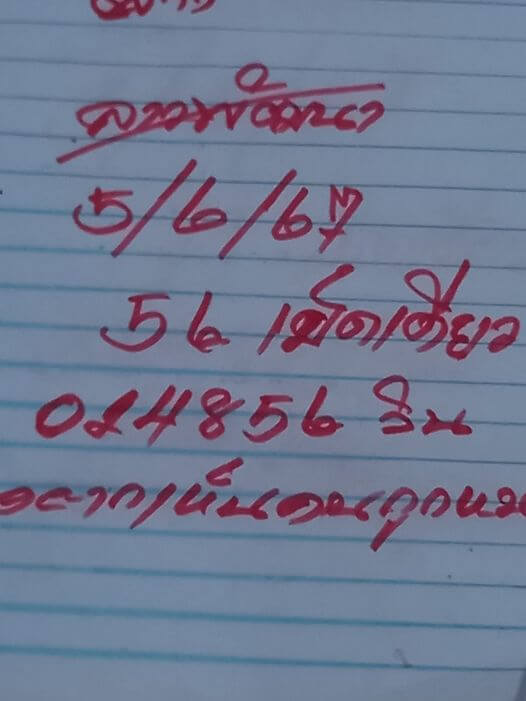 ลาวพัฒนา
5/6/67
56 เม็ดเดียว
024856 วิน
อยากเห็นคนถูกหวย